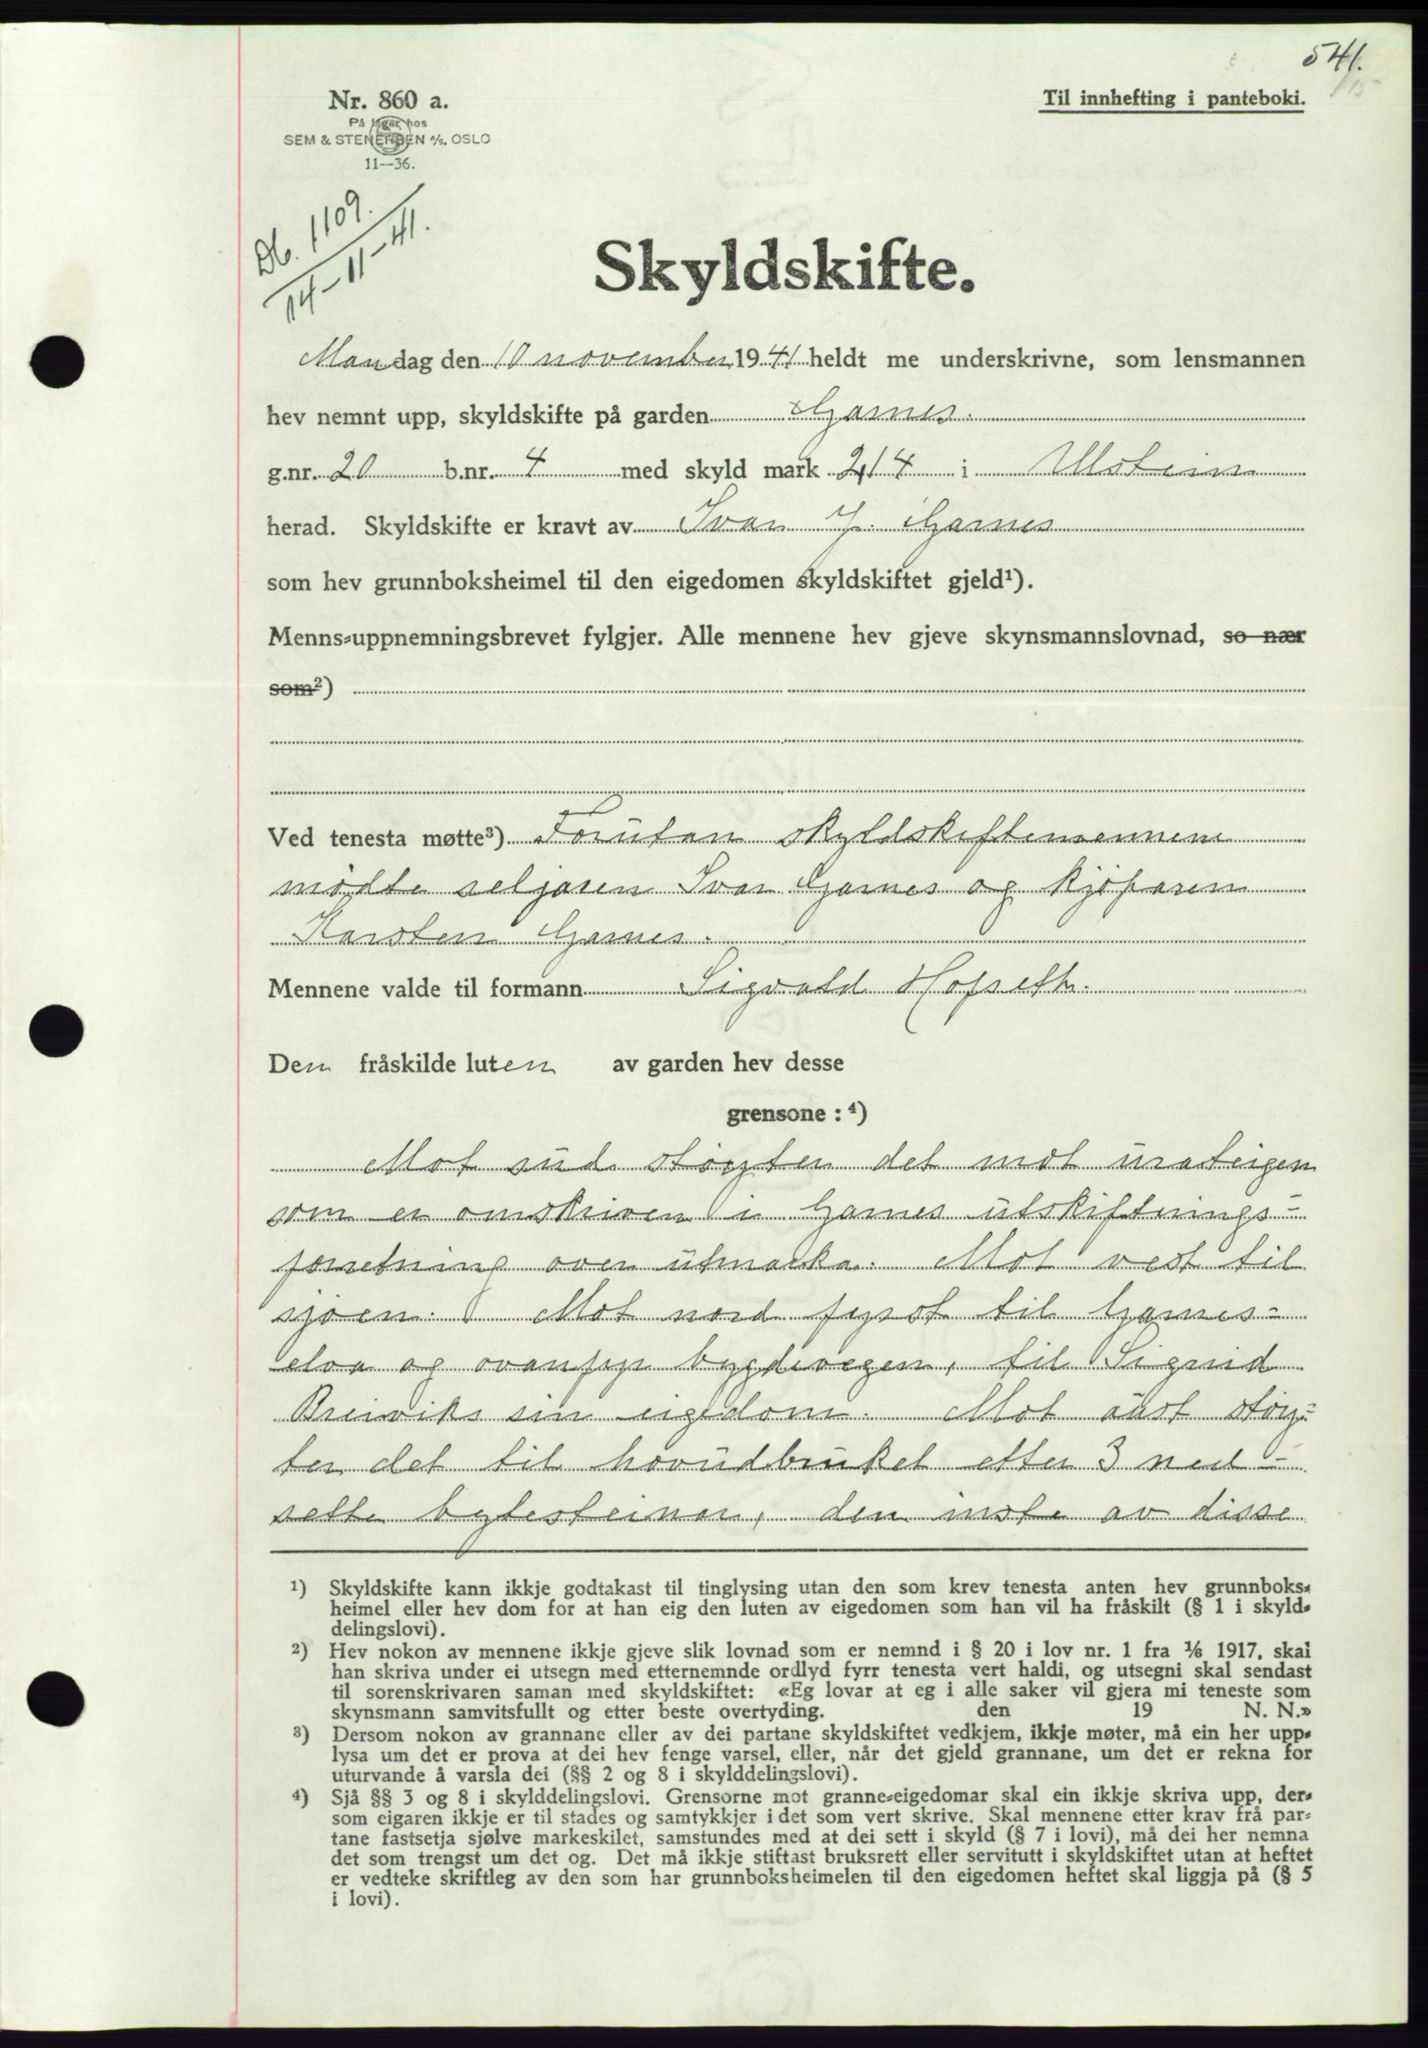 541.
Nr. 860 a.
På lager hos
SEM & STENERSEN A/S, OSLO
11—36.
Til innhefting i panteboki.
Db. 1109.
14-11-41.
Skyldskifte.
Mandag den 10 november 1941 heldt me underskrivne, som lensmannen
hev nemnt upp, skyldskifte på garden Garnes.
g.nr. 20 b.nr. 4 med skyld mark 2,14 i Ulstein
herad. Skyldskifte er kravt av Ivar J. Garnes
som hev grunnboksheimel til den eigedomen skyldskiftet gjeld¹).
Menns-uppnemningsbrevet fylgjer. Alle mennene hev gjeve skynsmannslovnad, so nær
som²)
Ved tenesta møtte³) Forutan skyldskiftemennene
mødte seljaren Ivar Garnes og kjøparen
Karsten Garnes.
Mennene valde til formann Sigvald Hofseth.
Den fråskilde luten av garden hev desse
grensone : ⁴)
Mot sud støyter det mot urateigen
som er omskriven i Garnes utskiftnings-
forretning over utmarka. Mot vest til
sjøen. Mot nord fyrst til Garnes-
elva og ovanfyr bygdevegen, til Sigrid
Breiviks sin eigedom. Mot aust støy-
ter det til hovudbruket etter 3 ned-
sette bytesteinar, den inste av disse
¹) Skyldskifte kann ikkje godtakast til tinglysing utan den som krev tenesta anten hev grunnboks-
heimel eller hev dom for at han eig den luten av eigedomen som han vil ha fråskilt (§ 1 i skyld-
delingslovi).
²) Hev nokon av mennene ikkje gjeve slik lovnad som er nemnd i § 20 i lov nr. 1 fra 1/6 1917, skal
han skriva under ei utsegn med etternemnde ordlyd fyrr tenesta vert haldi, og utsegni skal sendast
til sorenskrivaren saman med skyldskiftet: «Eg lovar at eg i alle saker vil gjera mi teneste som
skynsmann samvitsfullt og etter beste overtyding. den 19 N. N.»
³) Dersom nokon av grannane eller av dei partane skyldskiftet vedkjem, ikkje møter, må ein her upp-
lysa um det er prova at dei hev fenge varsel, eller, når det gjeld grannane, um det er rekna for
uturvande å varsla dei (§§ 2 og 8 i skylddelingslovi).
⁴) Sjå §§ 3 og 8 i skylddelingslovi. Grensorne mot granne-eigedomar skal ein ikkje skriva upp, der-
som eigaren ikkje er til stades og samtykkjer i det som vert skrive. Skal mennene etter krav frå par-
tane fastsetja sjølve markeskilet, samstundes med at dei sett i skyld (§ 7 i lovi), må dei her nemna
det som trengst um det og. Det må ikkje stiftast bruksrett eller servitutt i skyldskiftet utan at heftet
er vedteke skriftleg av den som har grunnboksheimelen til den eigedomen heftet skal liggja på (§ 5
i lovi).